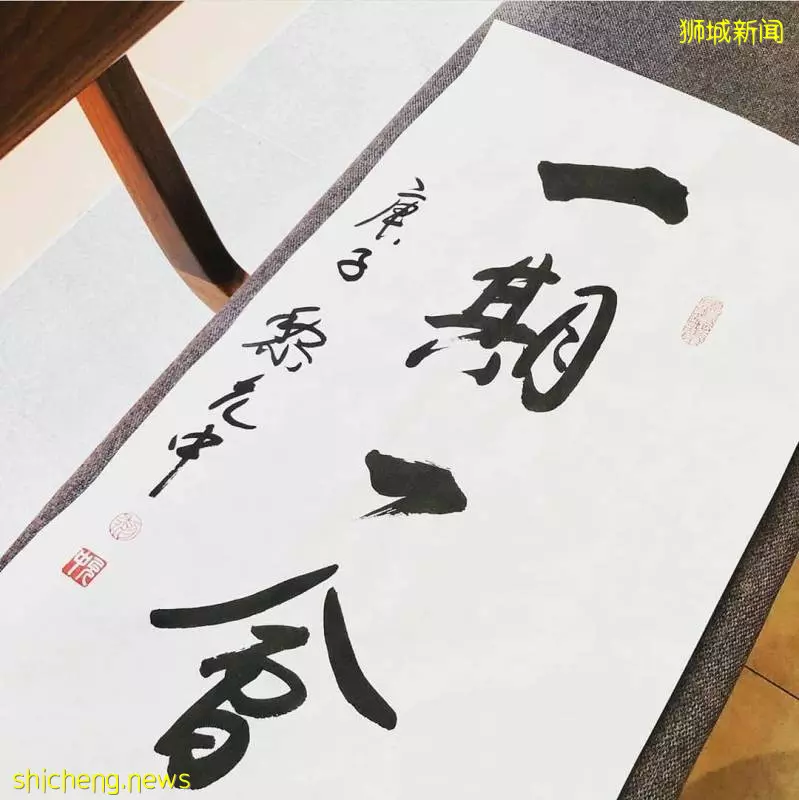 狮城新闻
一期一會
庚子 黎允中
shicheng.news